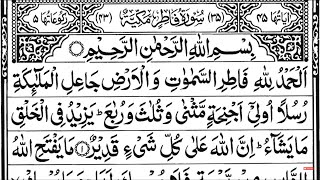 اٰیَاتُهَا ۴۵ (۳۵) سُوْرَةُ فَاطِرٍ مَّكِّیَّةٌ (۴۳) رُكُوْعَاتُهَا ۵
بِسْمِ اللّٰهِ الرَّحْمٰنِ الرَّحِیْمِ
اَلْحَمْدُ لِلّٰهِ فَاطِرِ السَّمٰوٰتِ وَالْاَرْضِ جَاعِلِ الْمَلٰٓئِكَةِ
رُسُلًا اُولِیْۤ اَجْنِحَةٍ مَّثْنٰی وَثُلٰثَ وَرُبٰعَ ؕ یَزِیْدُ فِی الْخَلْقِ
مَا یَشَآءُ ؕ اِنَّ اللّٰهَ عَلٰی كُلِّ شَیْءٍ قَدِیْرٌ ۝۱ مَا یَفْتَحِ اللّٰهُ